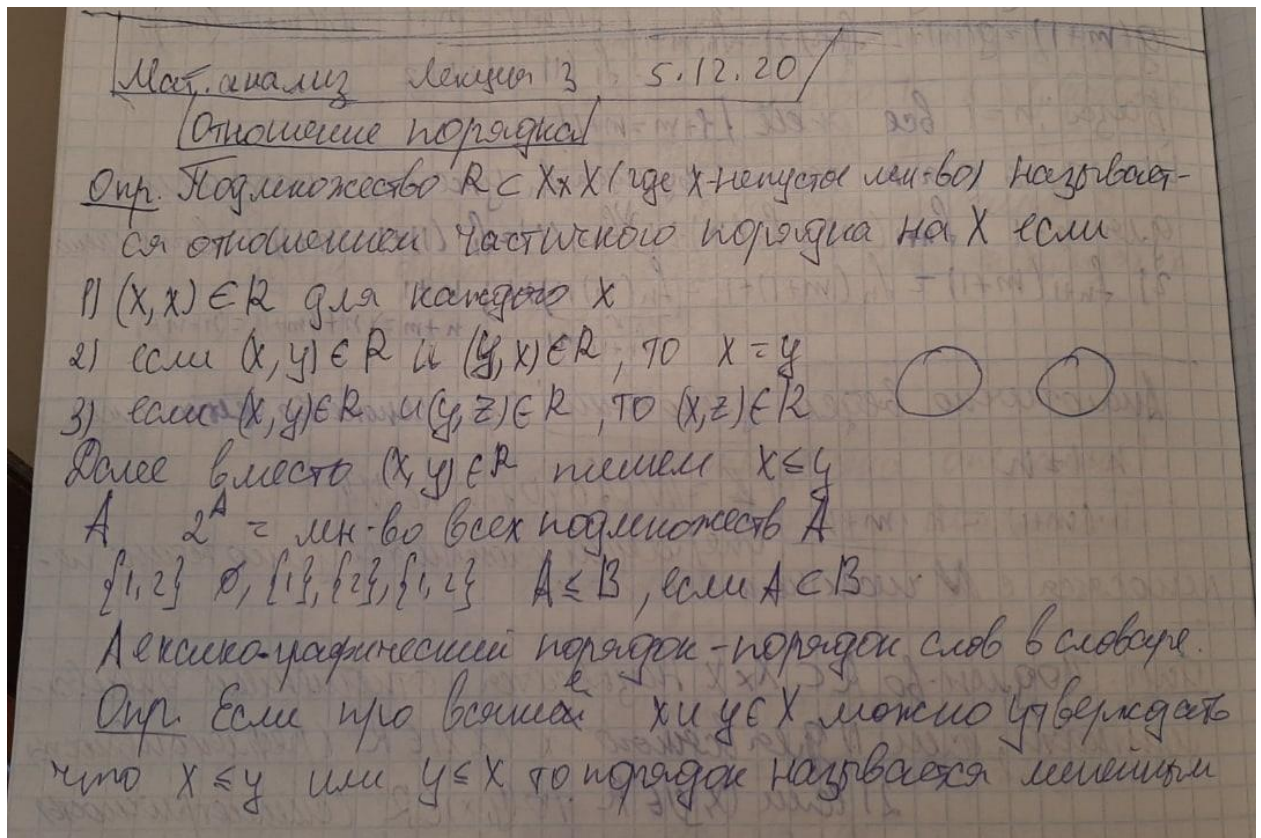 Мат. анализ Лекция 3 5.12.20
Отношение порядка
Опр. Подмножество R ⊂ X×X (где X-непустое мн-во) называет-
ся отношением частичного порядка на X если
1) (x,x) ∈ R для каждого x
2) если (x,y) ∈ R и (y,x) ∈ R, то x = y
3) если (x,y) ∈ R и (y,z) ∈ R, то (x,z) ∈ R
Далее вместо (x,y) ∈ R пишем x ≤ y
A 2^A = мн-во всех подмножеств A
{1,2} ∅, {1}, {2}, {1,2} A ≤ B, если A ⊂ B
Лексикографический порядок - порядок слов в словаре.
Опр. Если про всякие x и y ∈ X можно утверждать
что x ≤ y или y ≤ x то порядок называется линейным